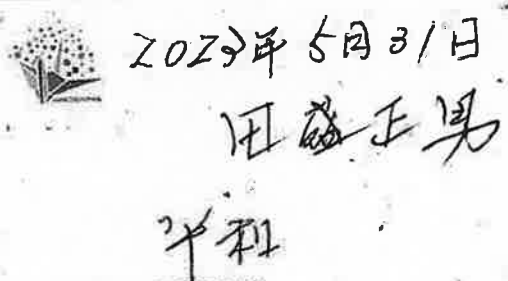 2023年5月31日
田盛正男
平和